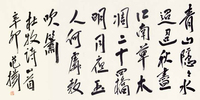 青山隱〻水
迢〻秋盡
江南草未
凋二十四橋
明月夜玉
人何處教
吹簫
杜牧詩一首
辛卯